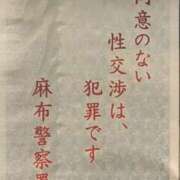 同意のない
性交渉は、
犯罪です
麻布警察署